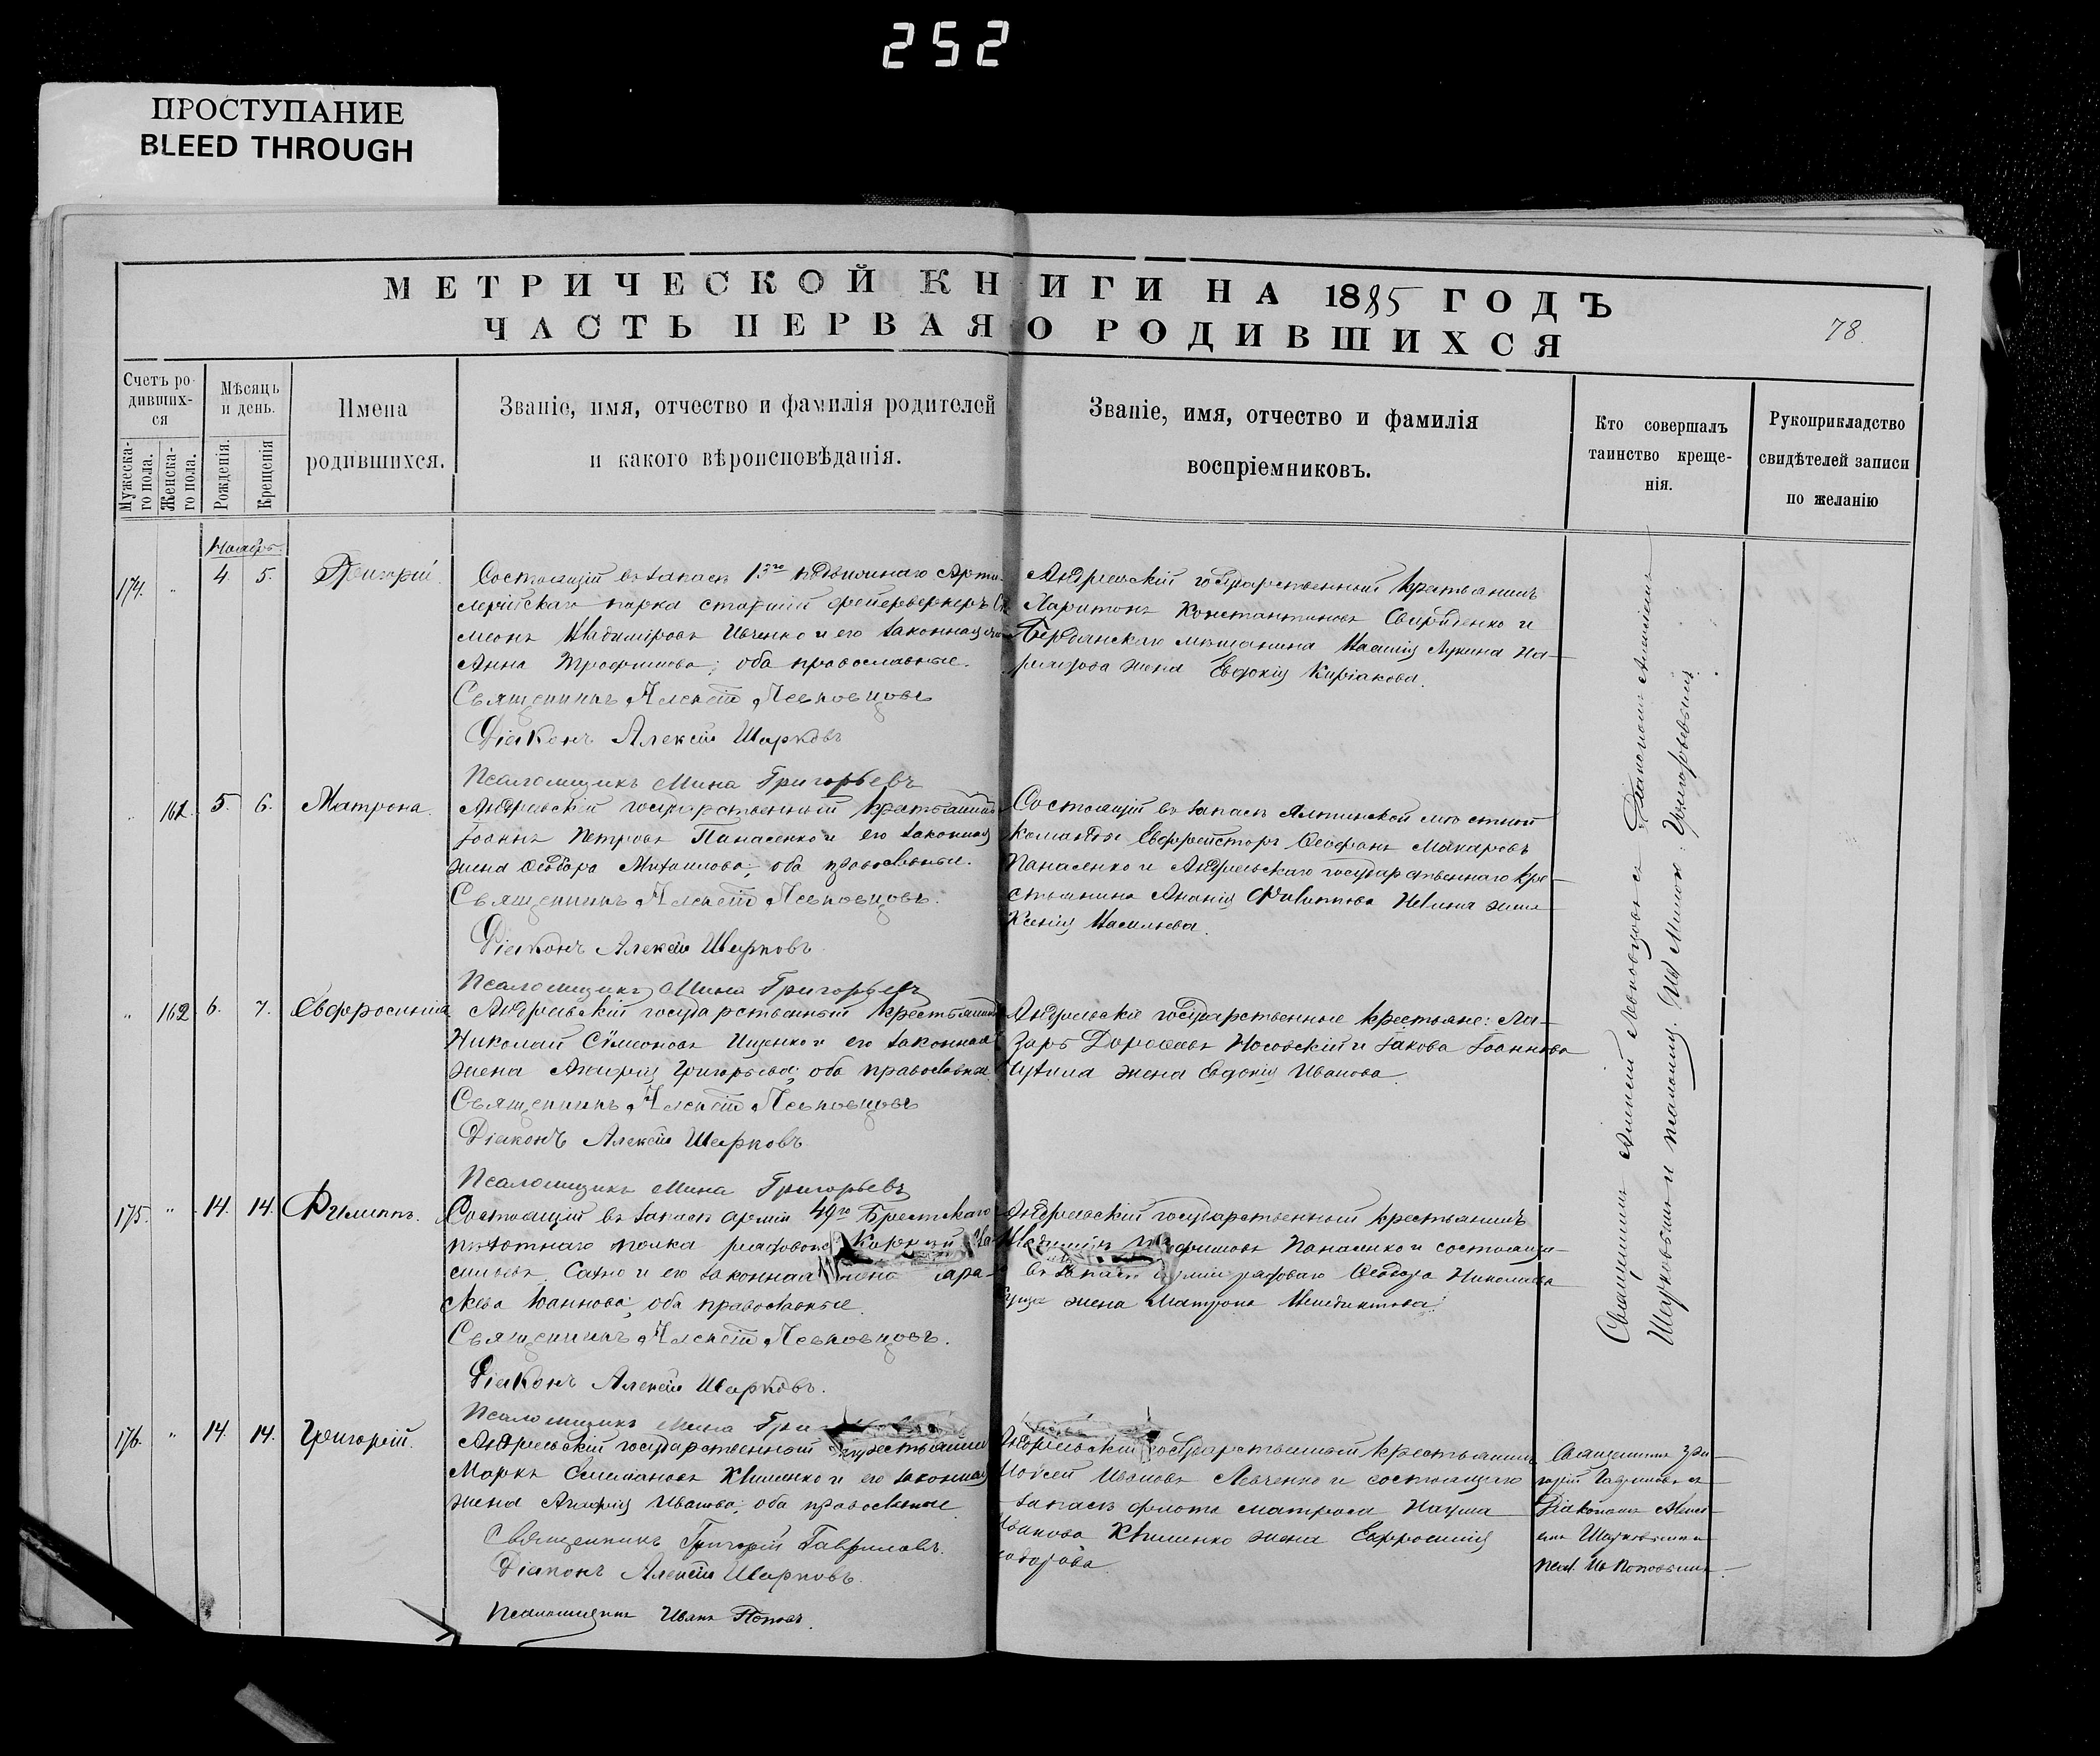 252
ПРОСТУПАНИЕ
BLEED THROUGH
МЕТРИЧЕСКОЙ КНИГИ НА 1885 ГОДЪ
ЧАСТЬ ПЕРВАЯ О РОДИВШИХСЯ
78.
Счетъ ро-
дивших-
ся
Мужеска-
го пола.
Женска-
го пола.
Мѣсяцъ
и день.
Рожденія.
Крещенія
Имена
родившихся.
Званіе, имя, отчество и фамилія родителей
и какого вѣроисповѣданія.
Званіе, имя, отчество и фамилія
воспріемниковъ.
Кто совершалъ
таинство креще-
нія.
Рукоприкладство
свидѣтелей записи
по желанію
Ноябрь.
174. " 4. 5. Григорій.
Состоящій въ запасѣ 13го подвижнаго Арти-
лерійскаго парка старшій фейерверкеръ Си-
меонъ Владиміровъ Ивченко и его законная жена
Анна Трофимова; оба православные.
Священникъ Алексій Левковцовъ
Діаконъ Алексій Шарковъ
Псаломщикъ Мина Григорьевъ
Андреевскій государственный крестьянинъ
Харитонъ Константиновъ Свириденко и
Бердянскаго мѣщанина Василія Лукина
жена Евдокія Киріакова.
" 161. 5. 6. Матрона.
Андреевскій государственный крестьянинъ
Іоаннъ Петровъ Панасенко и его законная
жена Ѳеодора Михаилова; оба православные.
Священникъ Алексій Левковцовъ.
Діаконъ Алексій Шарковъ
Псаломщикъ Мина Григорьевъ
Состоящій въ запасѣ Ялтинской мѣстной
команды Ефрейторъ Ѳеофанъ Макаровъ
Панасенко и Андреевскаго государственнаго кре-
стьянина Ананія Филиппова жена
Ксенія Васильева.
" 162 6. 7. Евфросинія
Андреевскій государственный крестьянинъ
Николай Сѵмеоновъ Ищенко и его законная
жена Агафія Григорьева; оба православные
Священникъ Алексій Левковцовъ
Діаконъ Алексій Шарковъ
Псаломщикъ Мина Григорьевъ
Андреевскіе государственные крестьяне: Ла-
зарь Дорофеевъ Носовскій и Іакова Іоаннова
жена Евдокія Иванова.
175. " 14. 14. Филиппъ.
Состоящій въ запасѣ арміи 49го Брестскаго
пѣхотнаго полка рядовой Корній Ва-
сильевъ Сахно и его законная жена Пара-
скева Іоаннова; оба православные.
Священникъ Алексій Левковцовъ.
Діаконъ Алексій Шарковъ.
Псаломщикъ Мина Гри
Андреевскій государственный крестьянинъ
Панасенко и состояща-
въ запасѣ арміи рядоваго Ѳеодора Николаева
жена Матрона Венедиктова.
176. " 14. 14. Григорій.
Андреевскій государственный крестьянинъ
Маркъ Клименко и его законная
жена Агафія Иванова; оба православные
Священникъ Григорій Гавриловъ.
Діаконъ Алексій Шарковъ.
Псаломщикъ Иванъ Поповъ.
Андреевскій государственный крестьянинъ
Моѵсей Ивановъ Левченко и состоящаго
запасѣ флота матроса Наума
Иванова Клименко жена Евфросинія
Ѳеодорова
Священникъ Алексій Левковцовъ съ Діакономъ Алексіемъ
Шарковымъ и псаломщ. Миною Григорьевымъ
Священникъ Гри-
горій Гавриловъ съ
Діакономъ Алексі-
емъ Шарковымъ и
псал. Ив. Поповымъ